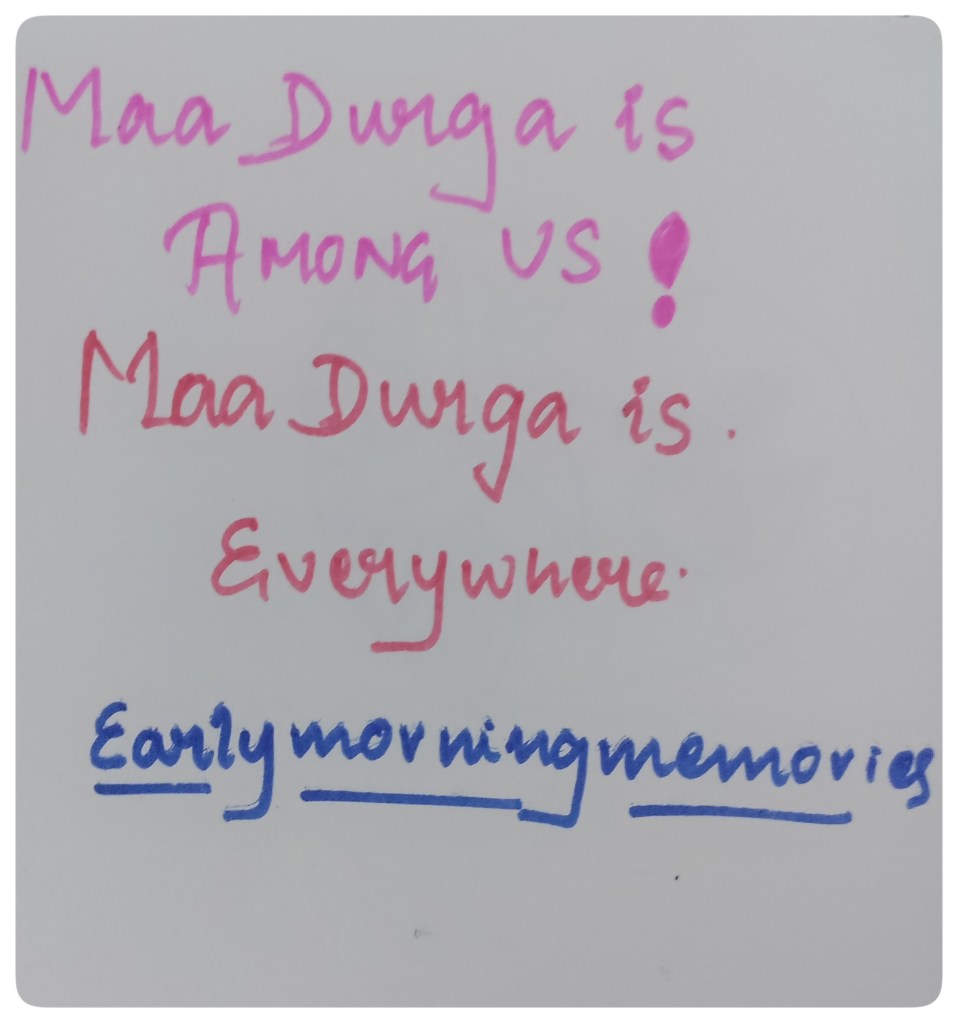 Maa Durga is
AMONG US!
Maa Durga is.
Everywhere.
Earlymorningmemories